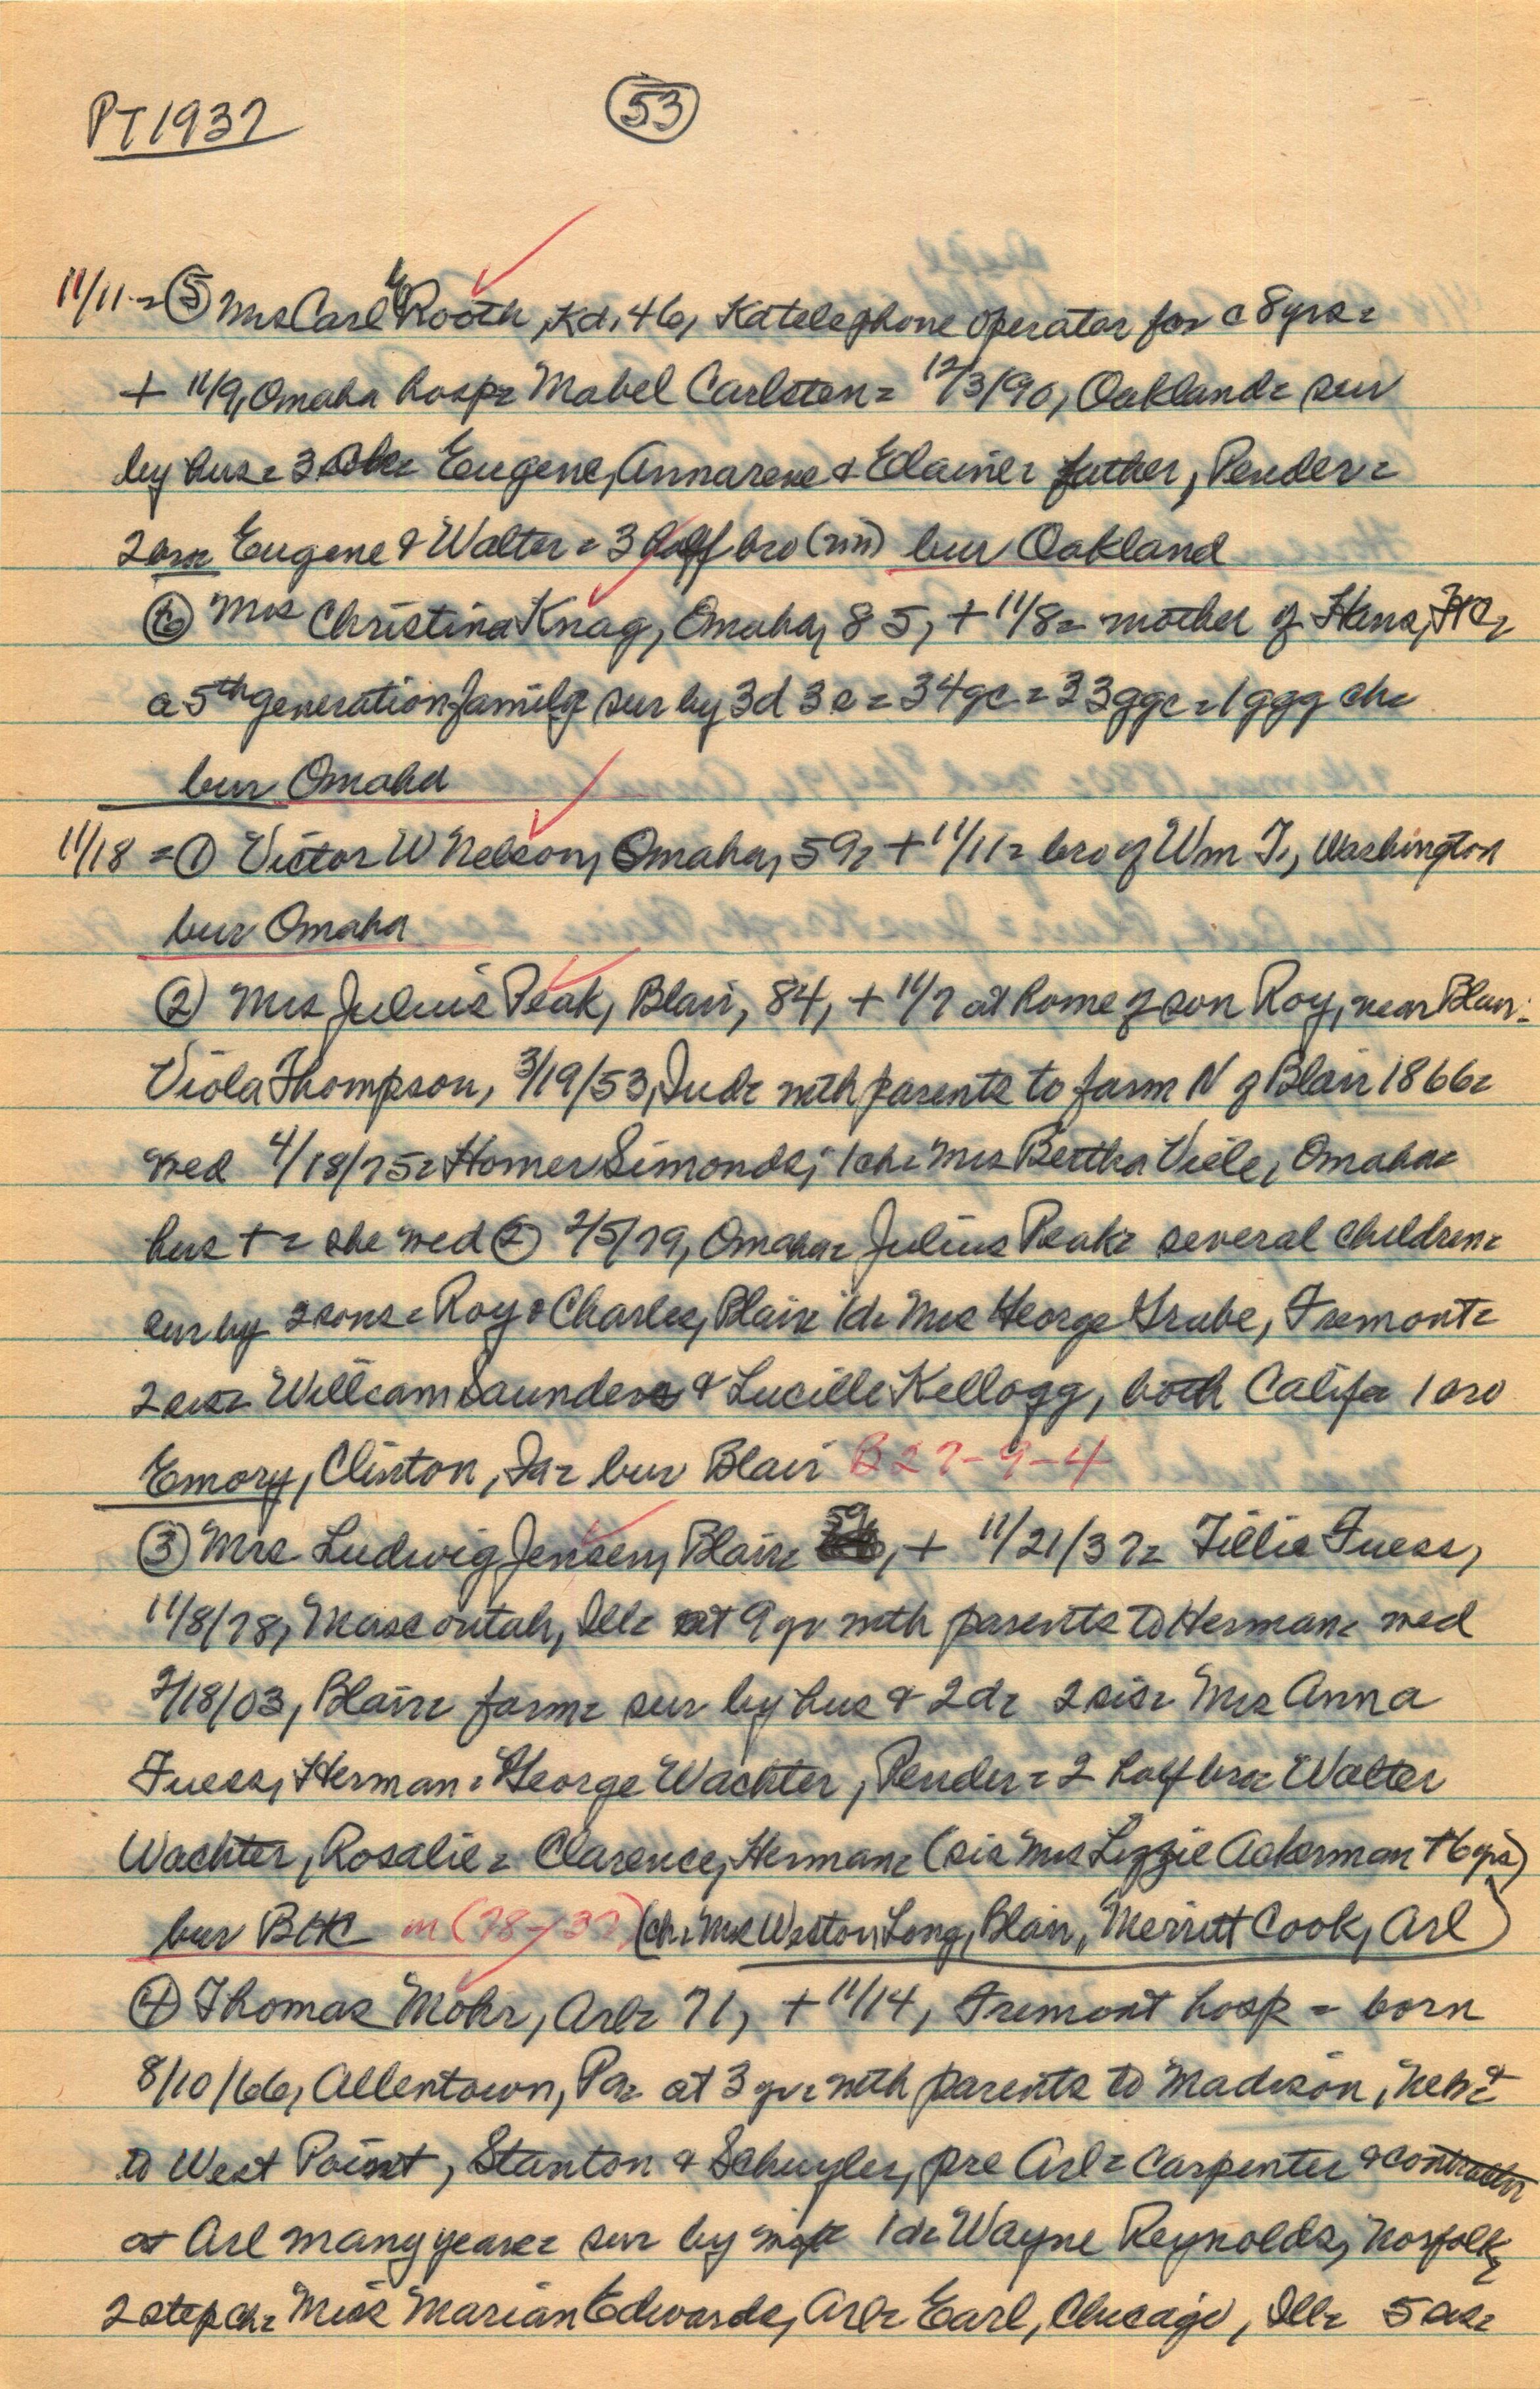 PT 1937
53
11/11 = ⑤ Mrs Carl Rooth, Kd, 46, Ka telephone operator for c 8 yrs =
+ 11/9, Omaha hosp = Mabel Carlsten = 12/3/90, Oakland = sur
by hus = 3 ch = Eugene, Annarene & Elaine = father, Pender =
2 bro = Eugene & Walter = 3 half bro (nin) bur Oakland
⑥ Mrs Christina Knag, Omaha, 85, + 11/8 = mother of Hans,
a 5th generation family sur by 3d 3s = 34gc = 33ggc = 1 ggg ch =
bur Omaha
11/18 = ① Victor W Nelson, Omaha, 59, + 11/11 = bro of Wm T., Washington
bur Omaha
② Mrs Julius Peak, Blair, 84, + 11/7 at home of son Roy, near Blair =
Viola Thompson, 3/19/53, Ind = with parents to farm N of Blair 1866 =
wed 4/18/75 = Homer Simonds; 1 ch = Mrs Bertha Viele, Omaha =
hus + = she wed ② 2/5/79, Omaha = Julius Peak = several children =
sur by 2 sons = Roy & Charles, Blair = 1d = Mrs George Grube, Fremont =
2 sis = William Saunders & Lucille Kellogg, both Calif = 1 bro
Emory, Clinton, Ia = bur Blair B 27-9-4
③ Mrs Ludwig Jensen, Blair = 59, + 11/21/37 = Tillie Fuess,
11/8/78, Mascoutah, Ill = at 9 yr with parents to Herman = wed
2/18/03, Blair = farm = sur by hus & 2d = 2 sis = Mrs Anna
Fuess, Herman = George Wachter, Pender = 2 half bro = Walter
Wachter, Rosalie = Clarence, Herman = (sis Mrs Lizzie Ackerman + 6 yrs)
bur BHC m (78-37) (ch = Mrs Weston Long, Blair, Merritt Cook, Arl)
④ Thomas Mohr, Arl = 71, + 11/14, Fremont hosp = born
8/10/66, Allentown, Pa = at 3 yr = with parents to Madison, Neb = &
to West Point, Stanton & Schuyler, pre Arl = Carpenter & contractor
at Arl many years = sur by wife 1d = Wayne Reynolds, Norfolk =
2 step ch = Miss Marian Edwards, Arl = Earl, Chicago, Ill = 5 sis =